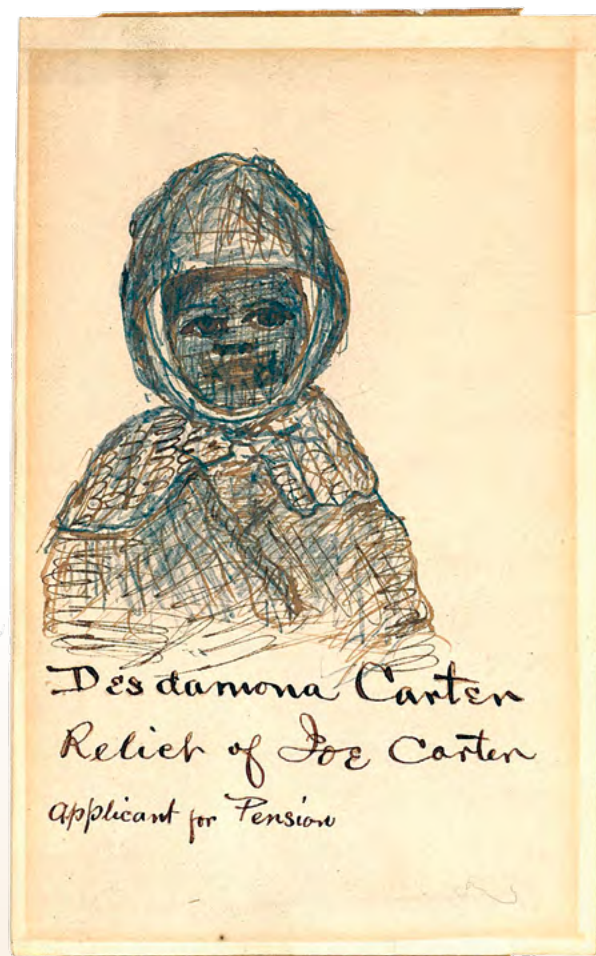 Desdamona Carter
Relict of Joe Carter
applicant for Pension